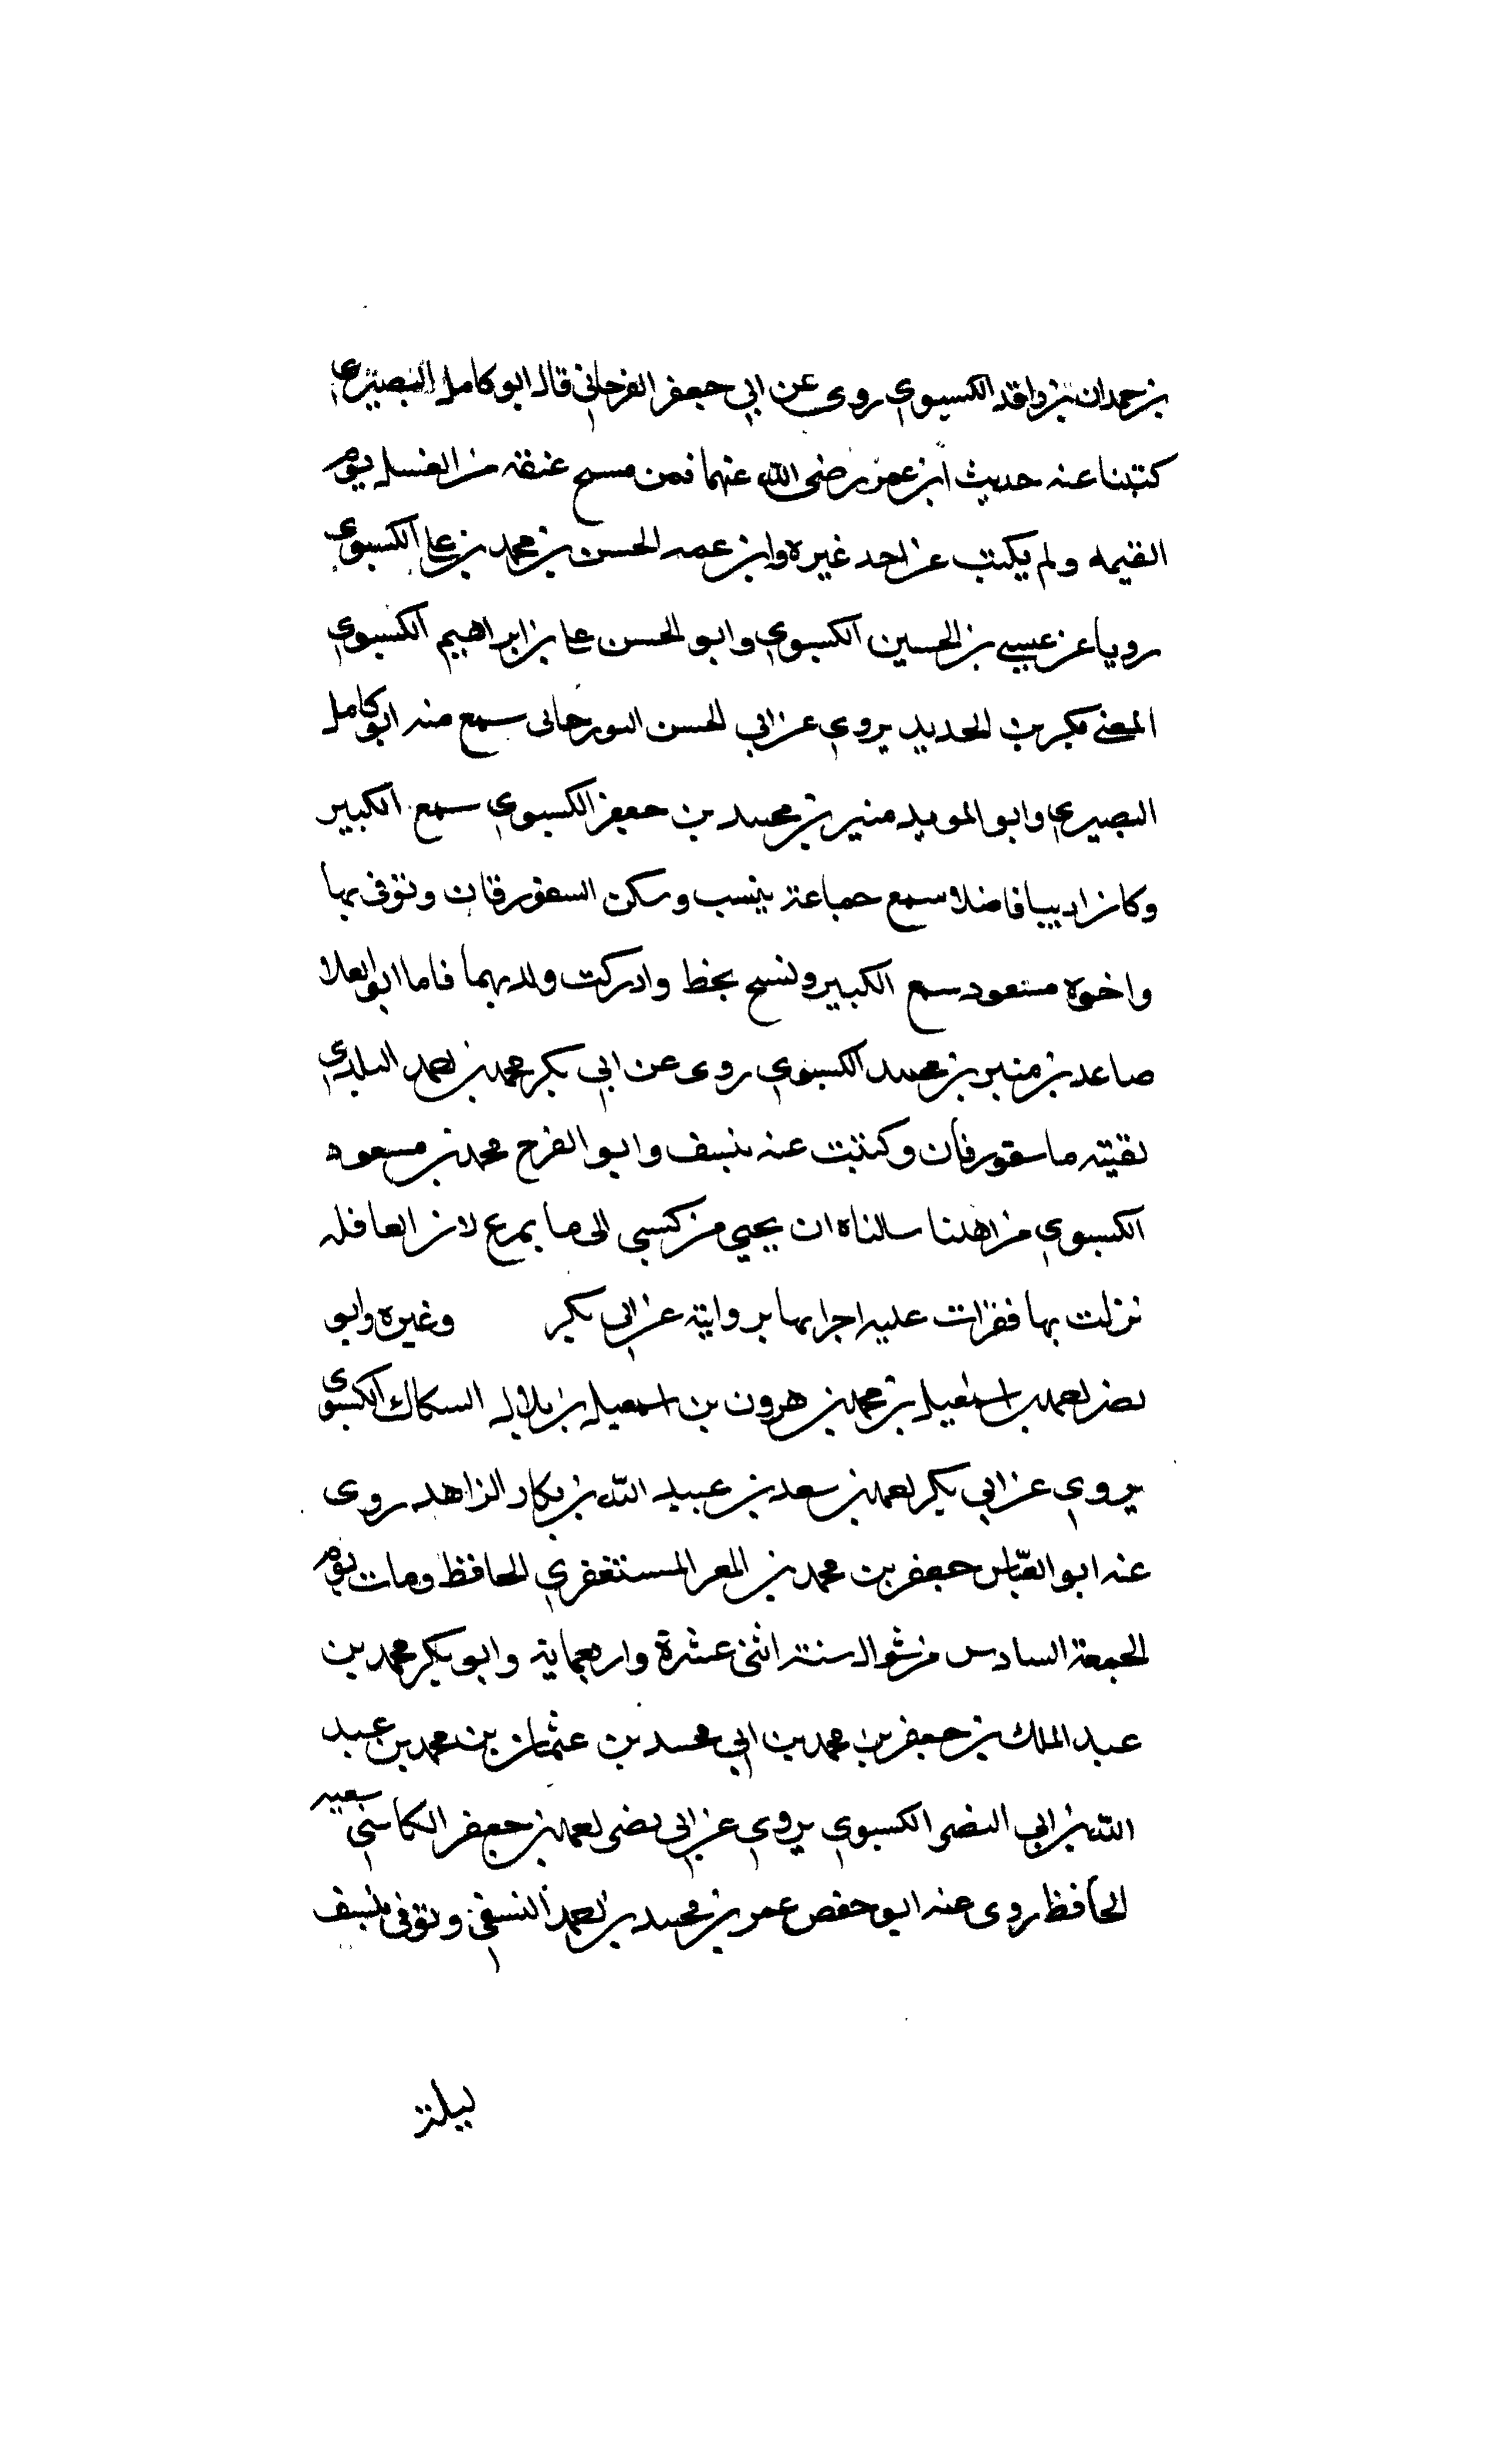 بن حمدان بن واقد الكسبوي روى عن ابي جعفر الفرخاني قال ابو كامل البصيري
كتبنا عنه حديث ابن عمر رضى الله عنهما فمن مسح عنقه من الغسل يوم
القيمه ولم يكتب عن احد غيره وابن عمه الحسن بن محمد بن على الكسبوي
رويا عن عيسى بن الحسين الكسبوي وابو الحسن على بن ابراهيم الكسبوي
يروى عن ابي الحسن سمع منه ابو كامل
البصيري وابو المويد منير بن محمد بن جعفر الكسبوي سمع الكبير
وكان اديبا فاضلا سمع جماعة بنسف وسكن السفورقان وتوفى بها
واخوه مسعود سمع الكبير ونسخ بخط وادركت ولديهما فاما ابو العلا
صاعد بن منير بن محمد الكسبوي روى عن ابي بكر محمد بن احمد البلدي
لقيته وكتبت عنه بنسف وابو الفرح محمد بن مسعود
الكسبوي من اهلنا سالناه ان يجيى من كسبى الى لان القافله
نزلت بها فقرات عليه اجزا بها بروايته عن ابى بكر وغيره وابو
نصر احمد بن اسمعيل بن محمد بن هرون بن اسمعيل بن بلال السكاك الكسبوي
يروى عن ابي بكر احمد بن سعد بن عبيد الله بن بكار الزاهد روى
عنه ابو العباس جعفر بن محمد بن المعز المستغفري الحافظ ومات يوم
الجمعة السادس من شوال سنة اثنى عشرة واربعماية وابو بكر محمد بن
عبد الملك بن جعفر بن محمد بن ابي محمد بن عثمان بن محمد بن عبد
الله بن ابي النضر الكسبوي يروى عن ابي نصر احمد بن جعفر الكاسنى
الحافظ روى عنه ابو حفص عمر بن محمد بن احمد النسفى وتوفى بنسف
ليلة